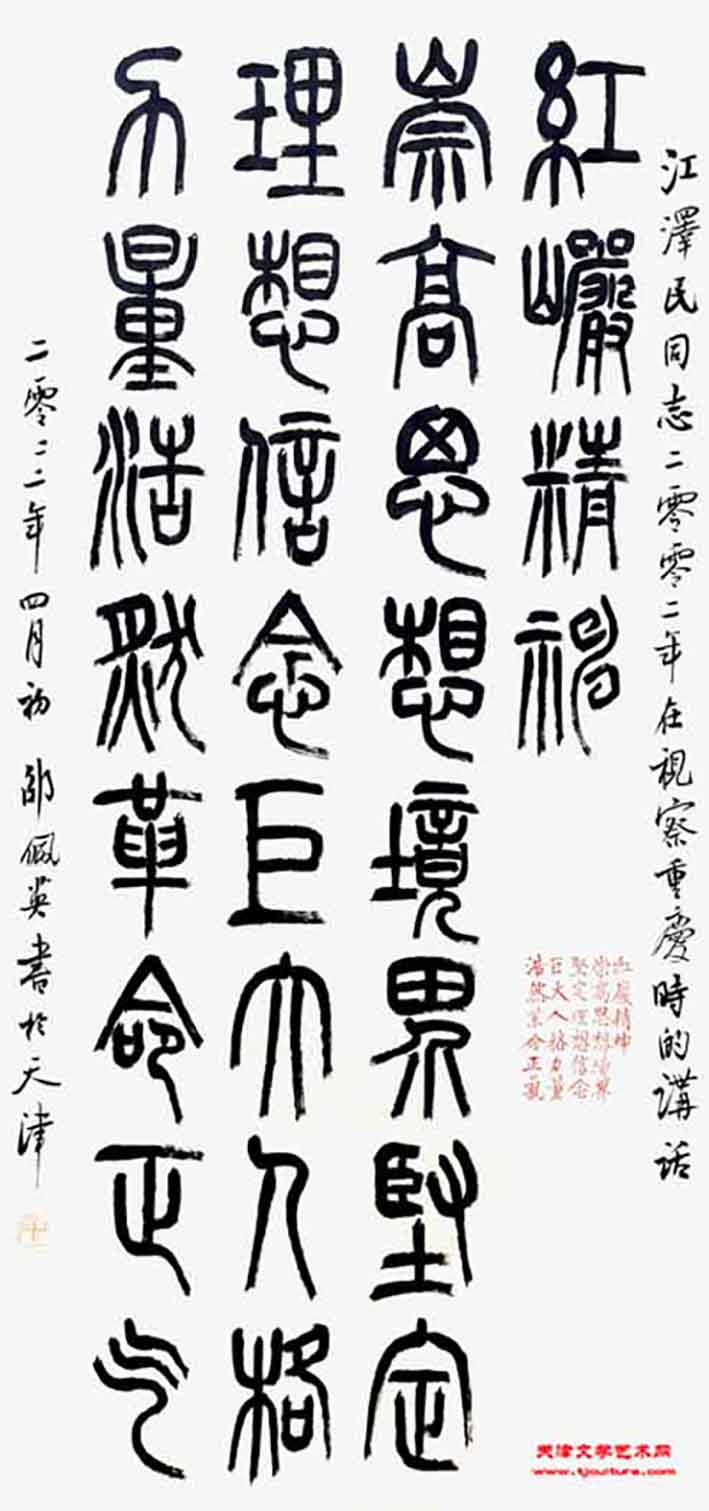 江澤民同志二零零二年在視察重慶時的講話
紅巖精神
崇高思想境界堅定
理想信念巨大人格
力量浩然革命正气
二零二二年四月初 邵佩英書於天津
紅巖精神
崇高思想境界
堅定理想信念
巨大人格力量
浩然革命正氣
天津文学艺术网
www.tjculture.com